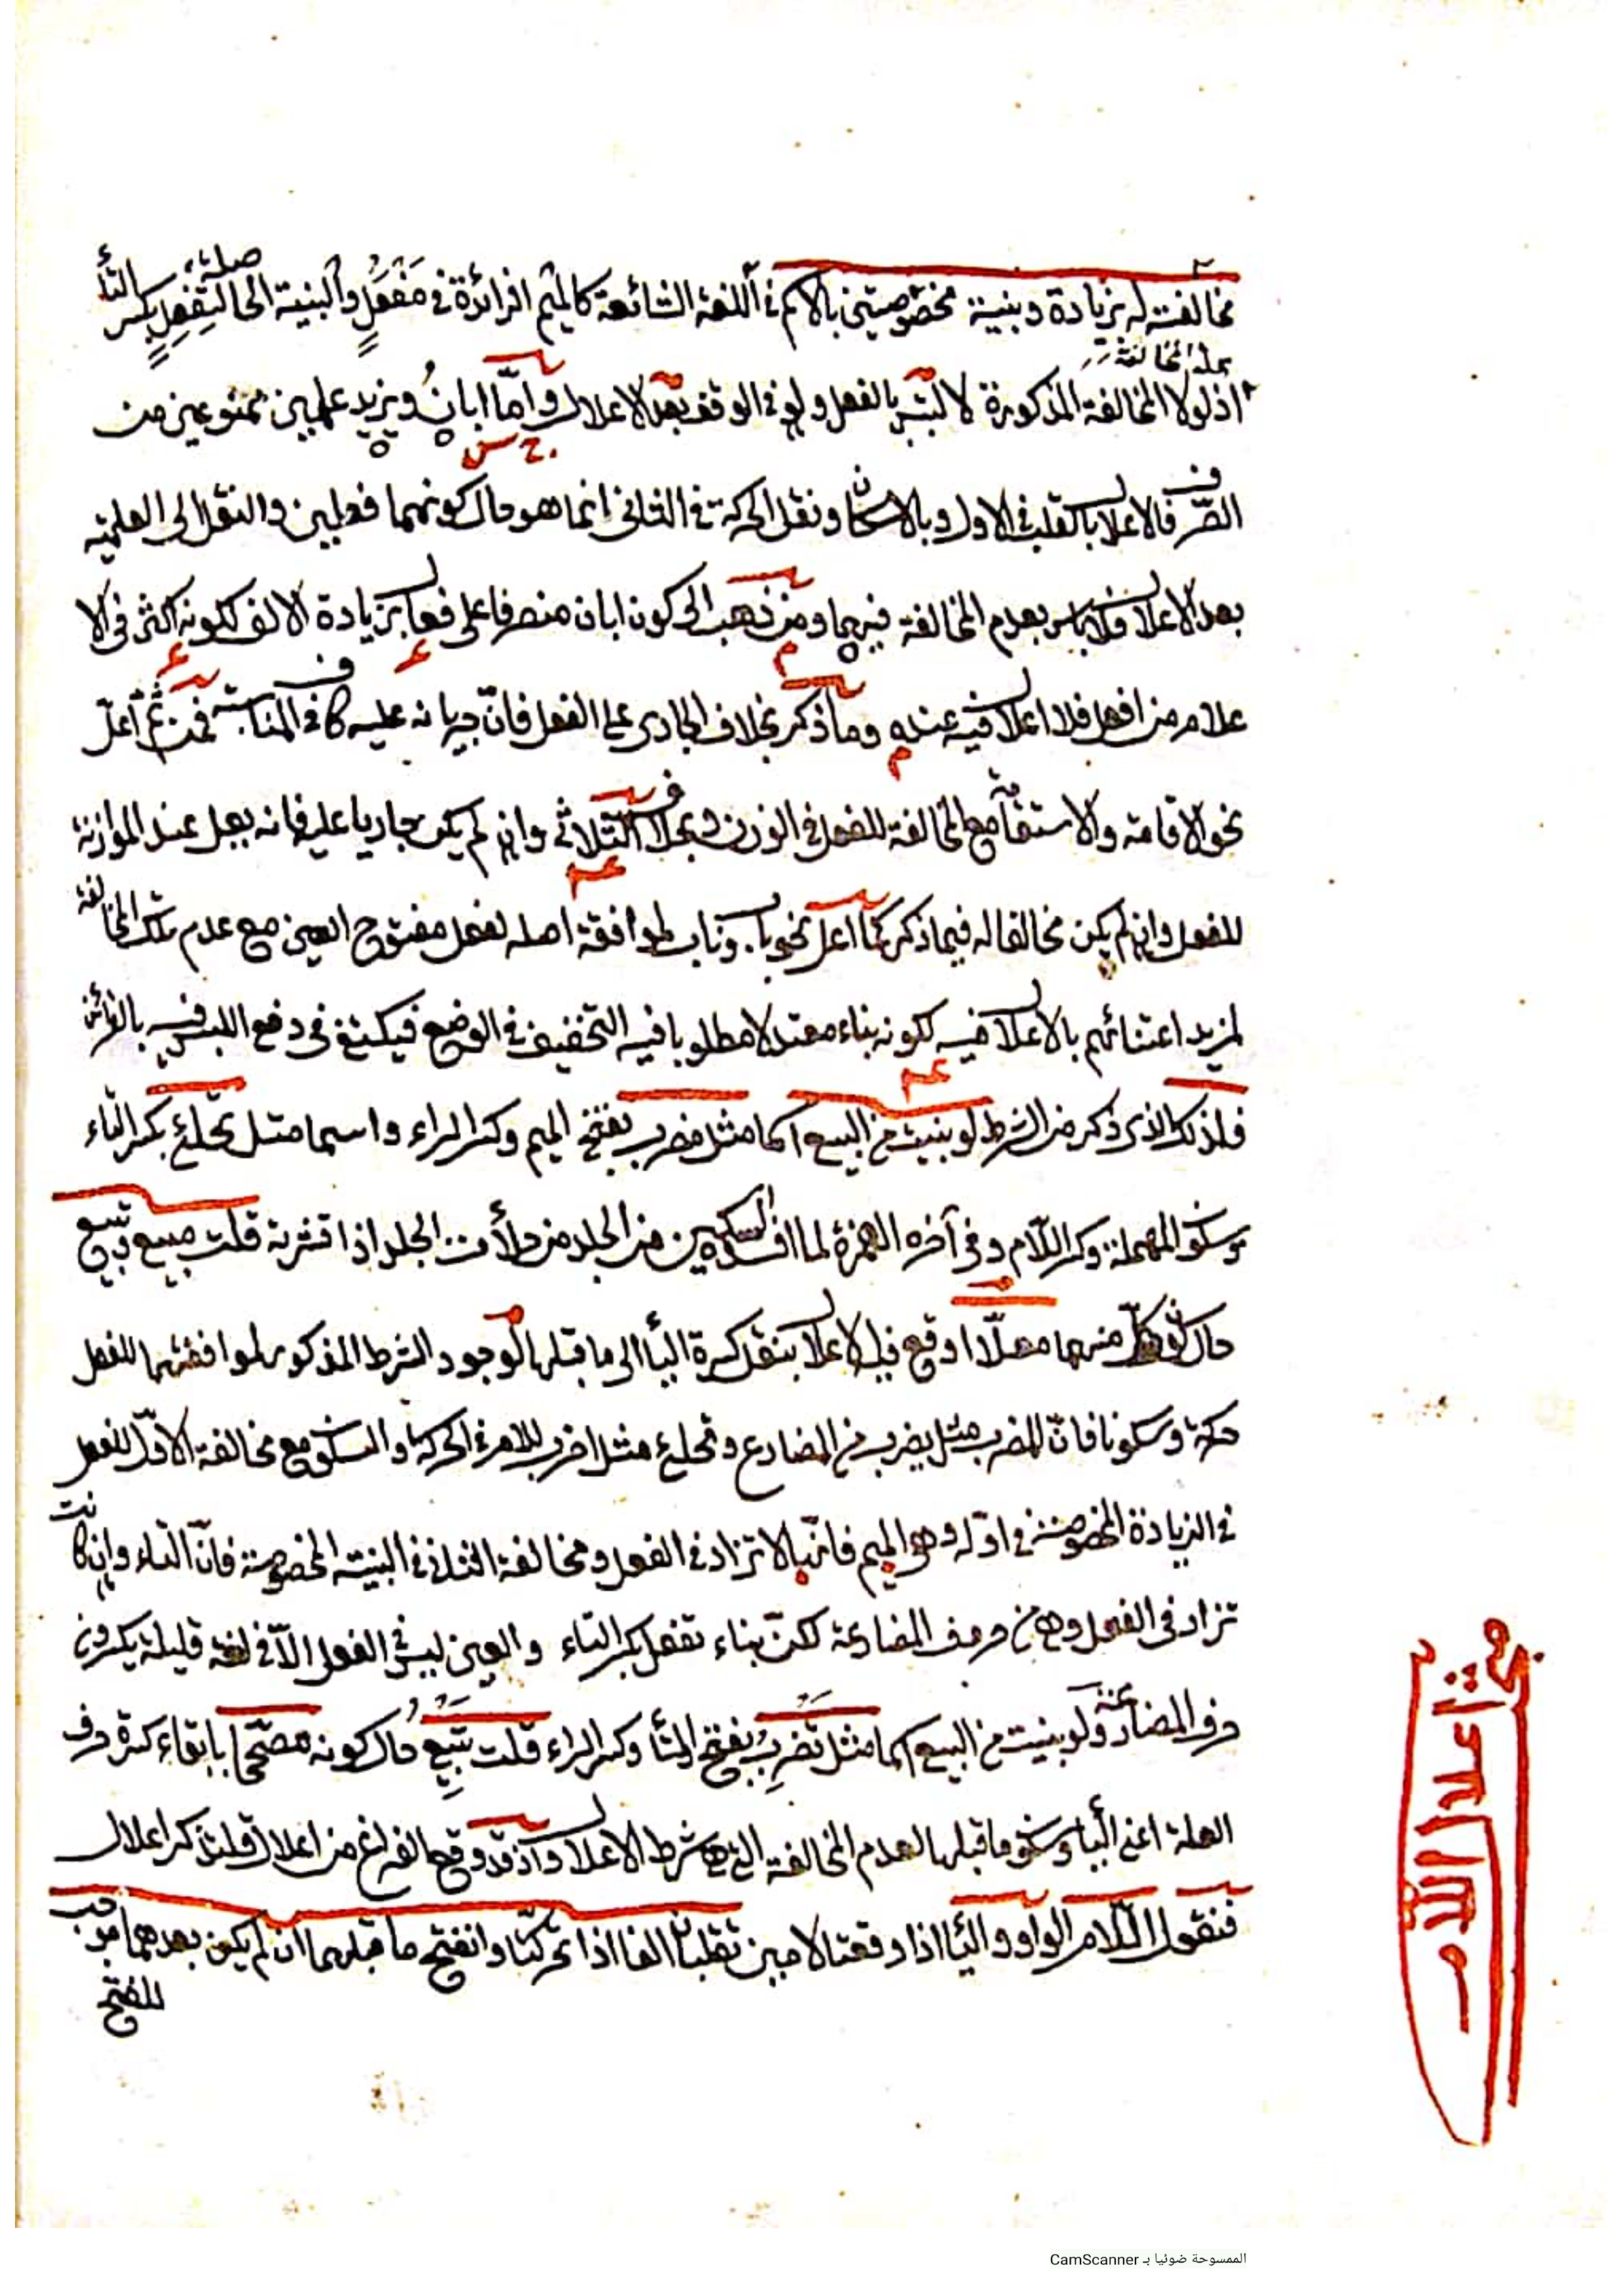 مخالفته له بزيادة وبنية مخصوصتين بالاسم في اللغة الشائعة كالميم الزائدة في مَفعَلٍ والبنية الحاصلة، لتِفعِلٍ بكسر التأ
اذ لولا المخالفة المذكورة لالتبس بالفعل ولو في الوقف بعد الاعلال واما ابانُ ويزيد علمين ممنوعين من
الصّرف فالاعلال بالقلب في الاول وبالاسكان ونقل الحركة في الثاني انما هو حال كونهما فعلين والنقل الى العلمية
بعد الاعلال فلا باس بعدم المخالفة فيهما ومن ذهب الى كون ابان منصرفا على فعال بزيادة الالف لكونه اكثر في الا
علام من افعل فلا اعلال فيه عنده وما ذكر بخلاف الجاري على الفعل فانّ جريانه عليه كاف في المناسبة فمن ثمّ اعلّ
نحو الاقامة والاستقامة مع المخالفة للفعل في الوزن وبخلاف الثلاثي وان لم يكن جاريا عليه فانه يعل عند الموازنة
للفعل وان لم يكن مخالفا له فيما ذكر كما اعل نحو باب وناب لموافقة اصله لفعل مفتوح العين مع عدم تلك المخالفة
لمزيد اعتنائهم بالاعلال فيه لكونه بناء معتدلا مطلوبا فيه التخفيف في الوضع فيكتفى في دفع اللبس فيه بالقرائن
فلذلك الذي ذكر من الشرط لو بنيت من البيع اسما مثل مضرب بفتح الميم وكسر الراء واسما مثل تحلئ بكسر التاء
وسكون المهملة وكسر اللّام وفي آخره الهمزة لما افسده السكين من الجلد من حلأت الجلد اذا قشرته قلت مبيع وتبيع
حال كون كل منهما معلّا اوقع فيه الاعلال بنقل كسرة اليأ الى ما قبلها لوجود الشرط المذكور لموافقتهما للفعل
حركة وسكونا فانّ المضرب مثل يضرب من المضارع وتحلئ مثل اضرب للامر في الحركة والسكون مع مخالفة الاوّل للفعل
في الزيادة المخصوصة في اوّله وهو الميم فانّها لا تزاد في الفعل ومخالفة الثاني في البنية المخصوصة فانّ التاء وان كانت
تزاد في الفعل وهي من حروف المضارعة لكنّ بناء تفعل بكسر التاء والعين ليس في الفعل الّا في لغة قليلة يكسرون
حرف المضارعة ولو بنيت من البيع اسما مثل تَضرِبُ بفتح التأ وكسر الراء قلت تَبْيِعُ حال كونه مصحّحا بابقاء كسرة حرف
العلة اعني اليأ وسكون ما قبلها لعدم المخالفة التي هي شرط الاعلال واذ قد وقع الفراغ من اعلال فلنذكر اعلال
فنقول اللّام الواو واليأ اذا وقعتا لامين تقلبان الفا اذا تحركتا وانفتح ما قبلهما ان لم يكن بعدهما موجب
للفتح
مبحث اعلال اللام
الممسوحة ضوئيا بـ CamScanner